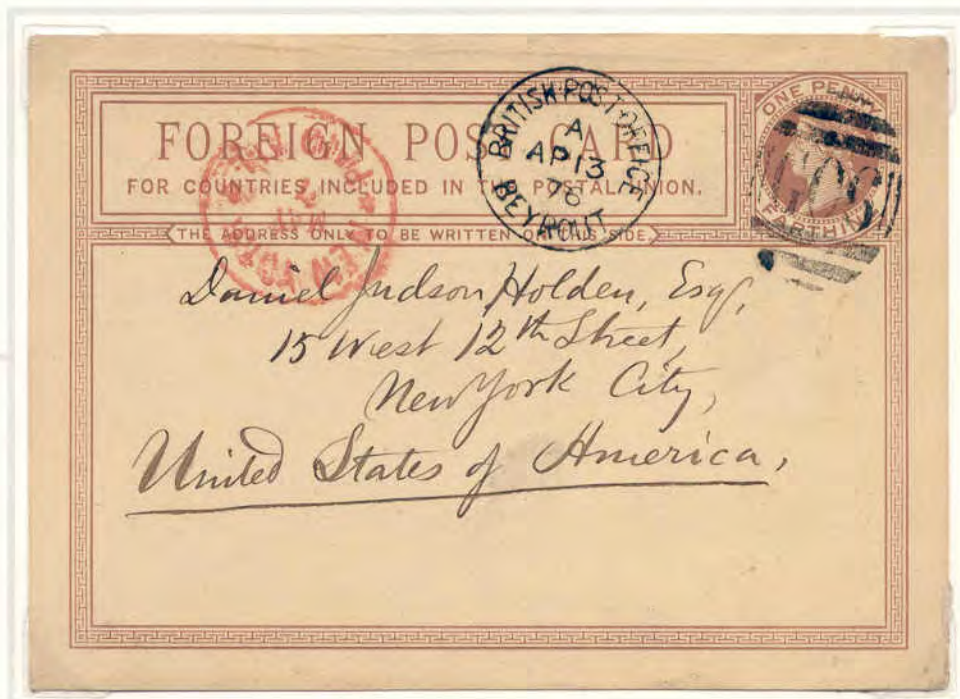 FOREIGN POST CARD
FOR COUNTRIES INCLUDED IN THE POSTAL UNION.
THE ADDRESS ONLY TO BE WRITTEN ON THIS SIDE
BRITISH POST OFFICE
A
AP 13
76
BEYROUT
ONE PENNY
FARTHING
NEW YORK
PAID
Daniel Judson Holden, Esq,
15 West 12th Street,
New York City,
United States of America,